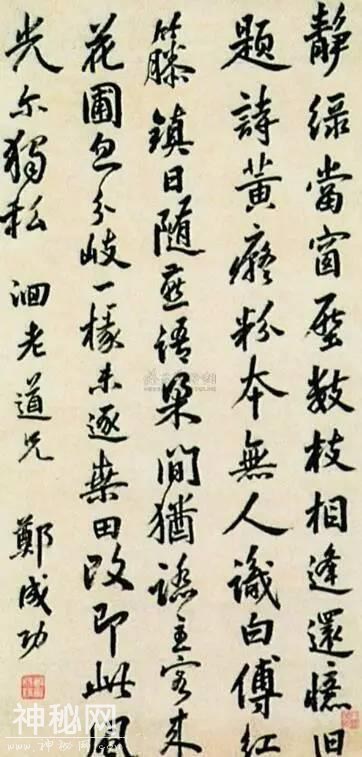 静綠當窗壓數枝相逢還憶旧
題詩黃癡粉本無人識白傅紅
籐鎮日隨燕語梁間猶認主客来
花圃忽分岐一椽未逐桑田改即此風
光尔獨私 洄老道兄 鄭成功
神秘网